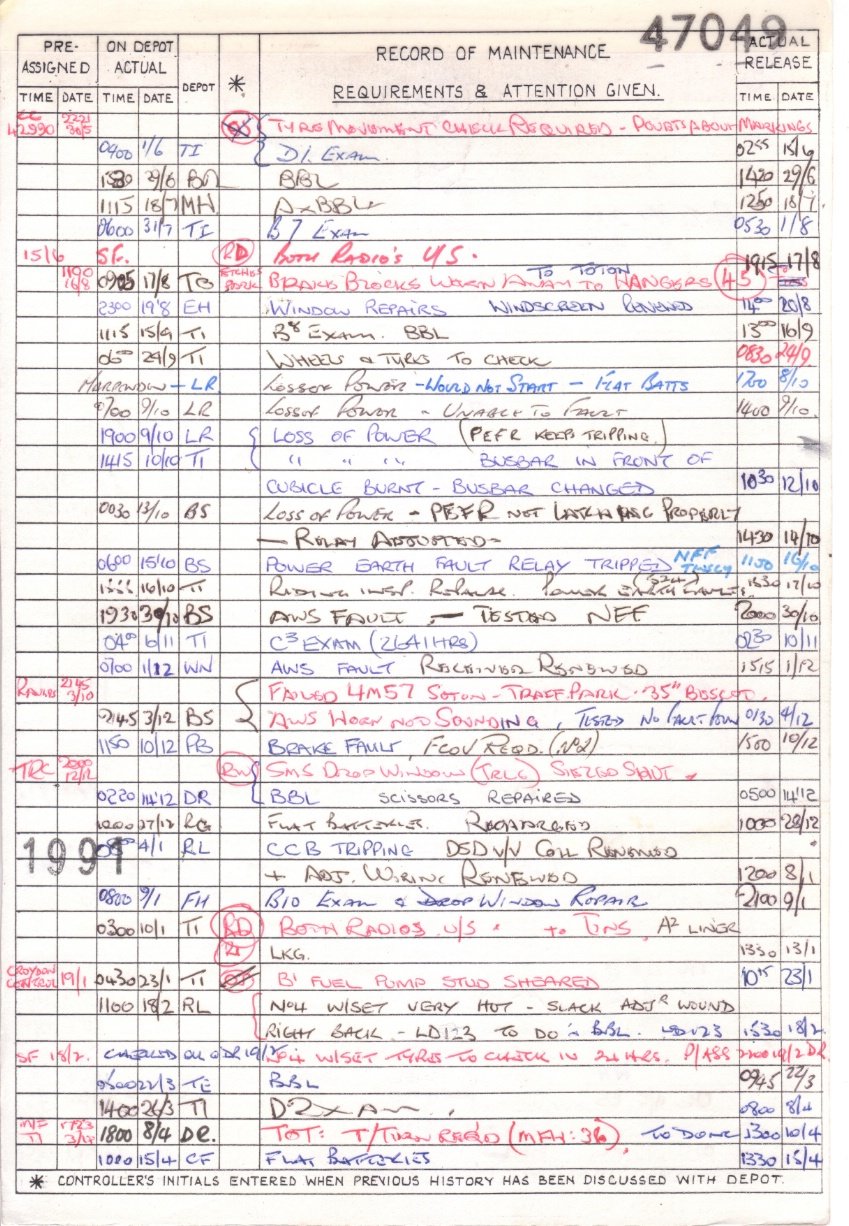 47049
PRE-ASSIGNED ON DEPOT ACTUAL DEPOT * RECORD OF MAINTENANCE REQUIREMENTS & ATTENTION GIVEN. ACTUAL RELEASE
TIME DATE TIME DATE TIME DATE
CC 42990 2221 30/5 TYRE MOVEMENT CHECK REQUIRED - DOUBTS ABOUT MARKINGS
0400 1/6 TI D1. EXAM. 0255 15/6
29/6 BBL 1420 29/6
1115 18/7 MH A x BBL 1250 18/7
0600 31/7 TI B7 EXAM 0530 1/8
15/6 SF. RD BOTH RADIO'S U/S.
1100 16/8 0905 17/8 TO BRAKE BLOCKS WORN AWAY TO HANGERS TO TOTON 45 1915 17/8
2300 19/8 EH WINDOW REPAIRS WINDSCREEN RENEWED 1400 20/8
1115 15/9 TI B8 EXAM. BBL 1300 16/9
0600 24/9 TI WHEELS & TYRES TO CHECK 0830 24/9
LR LOSS OF POWER - WOULD NOT START - FLAT BATTS 1700 8/10
0700 9/10 LR LOSS OF POWER - UNABLE TO FAULT 1400 9/10.
1900 9/10 LR LOSS OF POWER (PEFR KEEP TRIPPING.)
1415 10/10 TI " " " BUSBAR IN FRONT OF
CUBICLE BURNT - BUSBAR CHANGED 1030 12/10
0030 13/10 BS LOSS OF POWER - PEFR NOT LATCHING PROPERLY
- RELAY ADJUSTED - 1430 14/10
0600 15/10 BS POWER EARTH FAULT RELAY TRIPPED NFF 1150 16/10
16/10 TI RIDING INSP. POWER EARTH 1530 17/10
1930 30/10 BS AWS FAULT - TESTED NFF 2000 30/10
0400 6/11 TI C3 EXAM (2641 HRS) 0230 10/11
0700 1/12 WN AWS FAULT RECEIVER RENEWED 1515 1/12
2145 3/10 FAILED 4M57 SOTON - TRAFF. PARK "35" BESCOT.
2145 3/12 BS AWS HORN NOT SOUNDING, TESTED NO FAULT FOUND 0130 4/12
1150 10/12 PB BRAKE FAULT, REQD. (No2) 1500 10/12
TRC 2000 12/12 RW SMS DROP WINDOW (TRLC) SIEZED SHUT.
0220 14/12 DR BBL SCISSORS REPAIRED 0500 14/12
1200 27/12 RG FLAT BATTERIES. RECHARGED 1000 28/12
1991 4/1 RL CCB TRIPPING DSD V/V COIL RENEWED
+ ADJ. WIRING RENEWED 1200 8/1
0800 9/1 FH B10 EXAM & DROP WINDOW REPAIR 2100 9/1
0300 10/1 TI RD BOTH RADIOS U/S to TINS, A2 LINER
LKG. 1330 13/1
CROYDON CONTROL 19/1 0430 23/1 TI B1 FUEL PUMP STUD SHEARED 1015 23/1
1100 18/2 RL No4 W/SET VERY HOT - SLACK ADJR WOUND
RIGHT BACK - LD123 TO DO in BBL. LD123 1530 18/2
SF 18/2. CHECKED ON DR 19/2 No4 W/SET TYRES TO CHECK IN 24 HRS. P/ASS 2200 19/2 DR
0600 22/3 TE BBL 0945 22/3
1400 26/3 TI D EXAM. 0800 8/4
TI 1800 8/4 DR. TOT: T/TURN REQ'D (MFH: 36), TO DONC 1300 10/4
1000 15/4 CF FLAT BATTERIES 1330 15/4
* CONTROLLER'S INITIALS ENTERED WHEN PREVIOUS HISTORY HAS BEEN DISCUSSED WITH DEPOT.